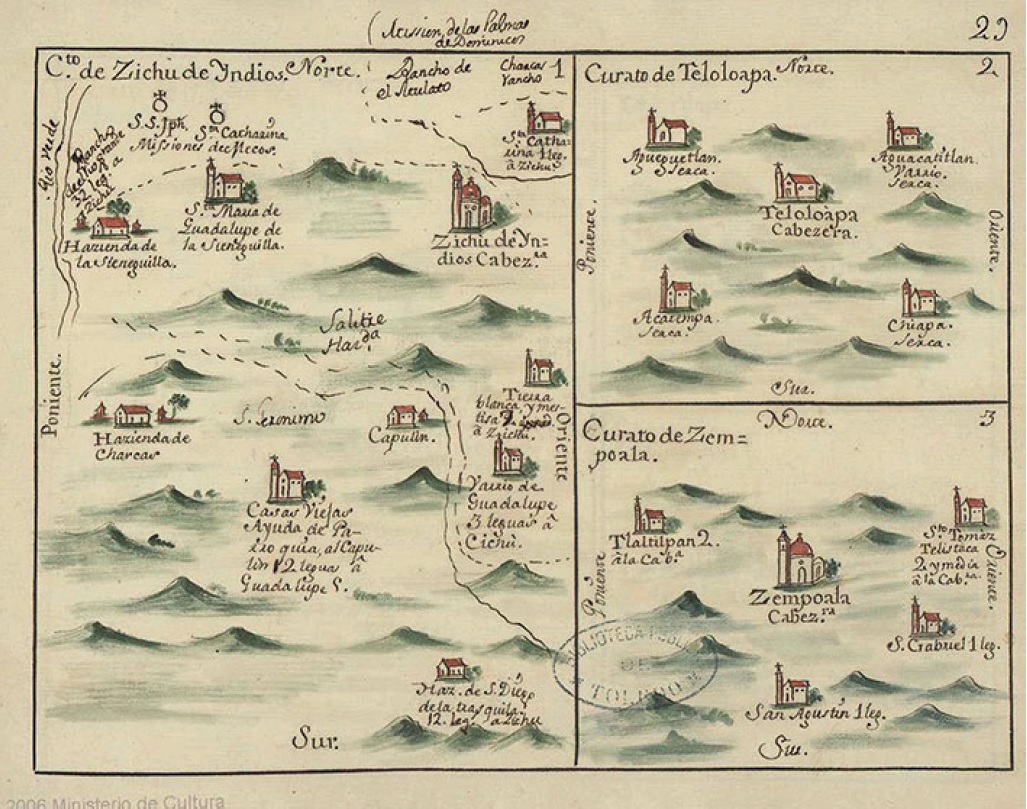 Mission, de las Palmas
de Dominicos
29
C.to de Zichú de Yndios. Norte.
Rancho de
el Mulato
Charcas
rancho
1
Rio Verde
S.S. Jph.
S.ta Catharina
Missiones de Mecos.
S.ta Catha-
rina 1 leg.
à Zichu.
Hazienda de
la Sieneguilla.
S.ta Maria de
Guadalupe de
la Sieneguilla.
Zichú de Yn=
dios Cabez.ra
Salitre
Haz.da
Poniente.
Hazienda de
Charcas
S. Geronimo
Capulin.
Tierra
blanca, y mes-
tisa
à Zichú.
Oriente
Casas Viejas
Ayuda de Pa-
rroquia, al Capu-
lin 12 leguas à
Guadalupe 5.
Varrio de
Guadalupe
3 leguas â
Cichú.
Haz. de S. Diego
de la trasquila.
12. leg.s a Zichu
Sur.
Curato de Teloloapa. Norte.
2.
Apuepuetlan.
Serca.
Aguacatitlan.
Varrio
serca.
Teloloapa
Cabezera.
Poniente.
Oriente.
Acatempa.
serca.
Chiapa.
serca.
Sur.
Norte.
3
Curato de Zem=
poala.
Tlaltilpan 2.
â la Cab.a
S.to Tomas
Telistaca
2 y media
â la Cab.ra
Poniente
Oriente.
Zempoala
Cabez.ra
S. Grabriel 1 leg.
San Agustin 1 leg.
Sur.
BIBLIOTECA PUBLICA
DE
TOLEDO
2006 Ministerio de Cultura